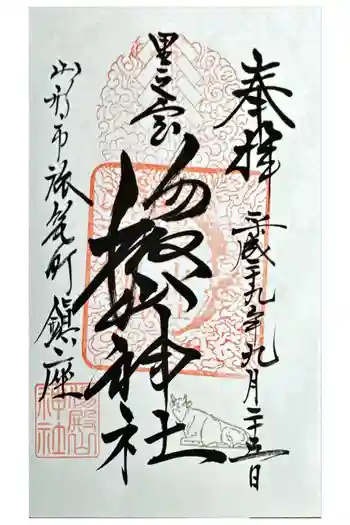 奉拝
平成二十九年九月二十五日
里之宮
湯殿山神社
山形市旅篭町鎮座
湯殿山
神社